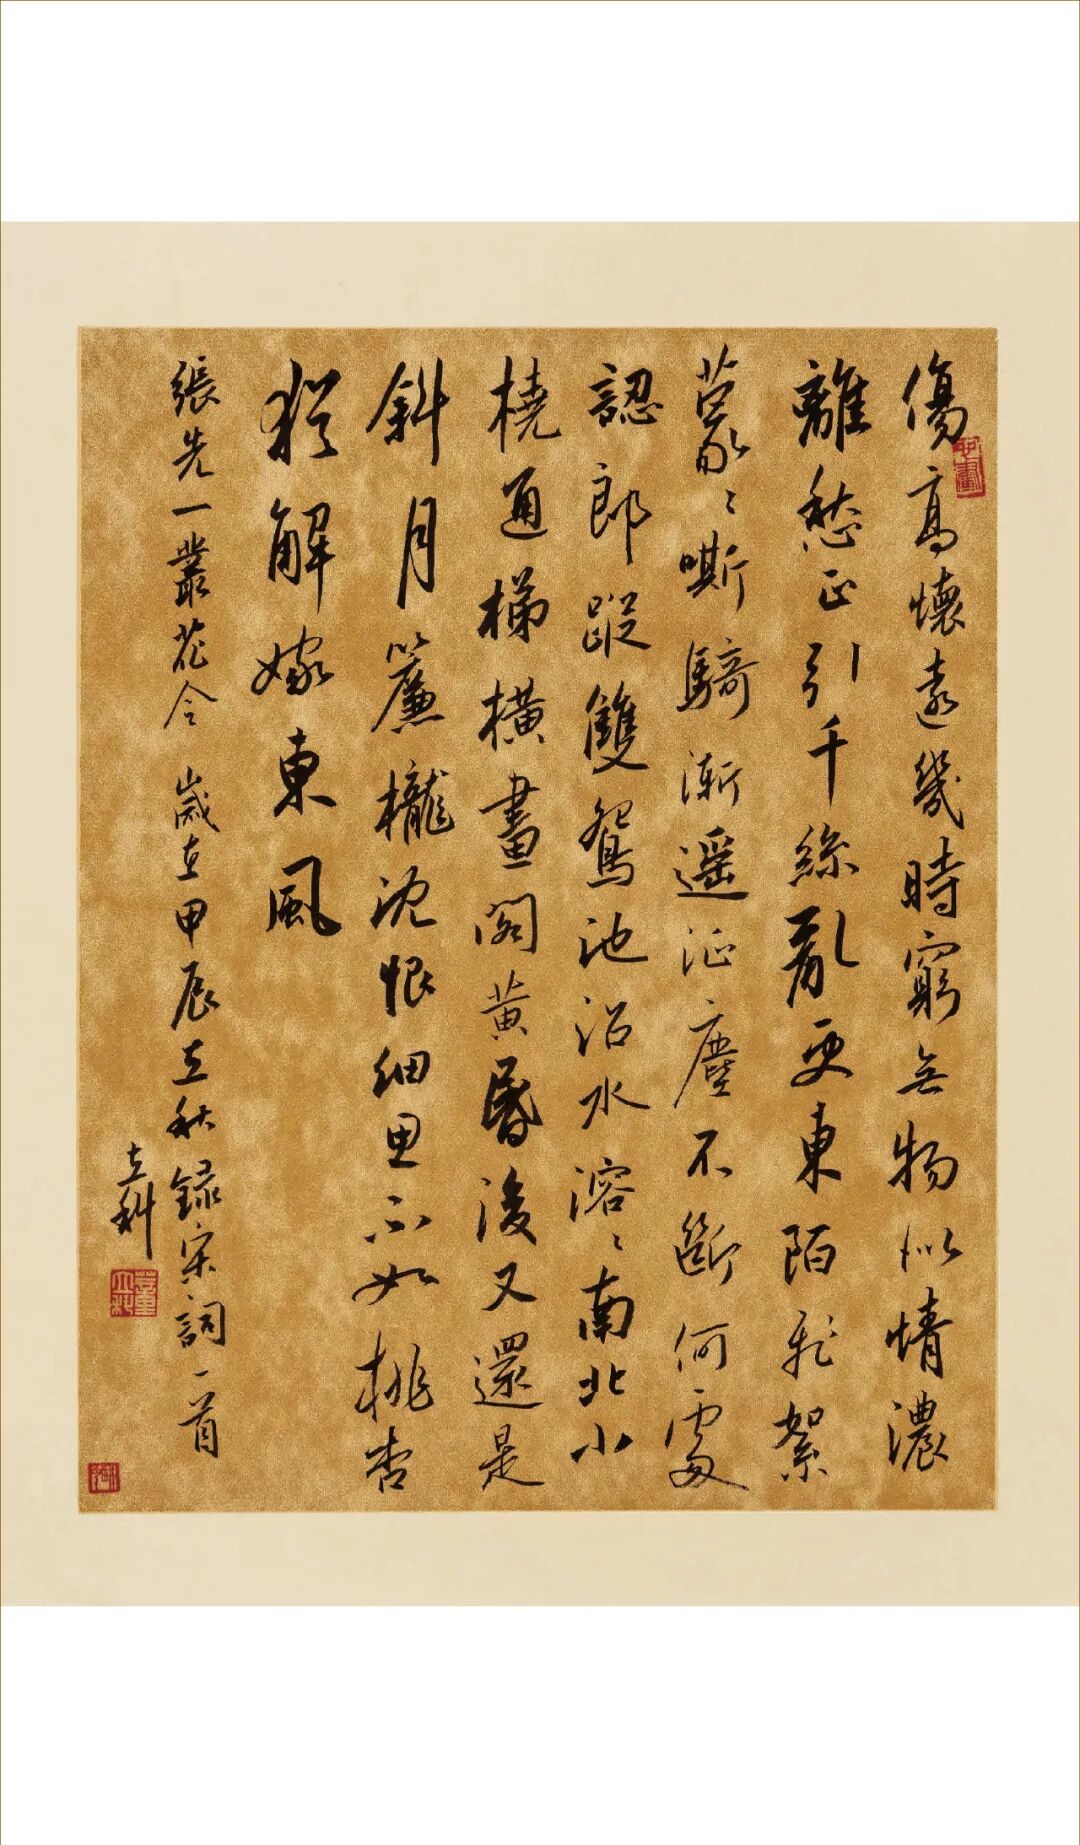 傷高懷遠幾時窮無物似情濃
離愁正引千絲亂更東陌飛絮
蒙〻嘶騎漸遥征塵不斷何處
認郎蹤雙鴛池沼水溶〻南北小
橈通梯橫畫閣黃昏後又還是
斜月簾櫳沈恨細思不如桃杏
猶解嫁東風
張先一叢花令 歲在甲辰立秋録宋詞一首
立科
董立科